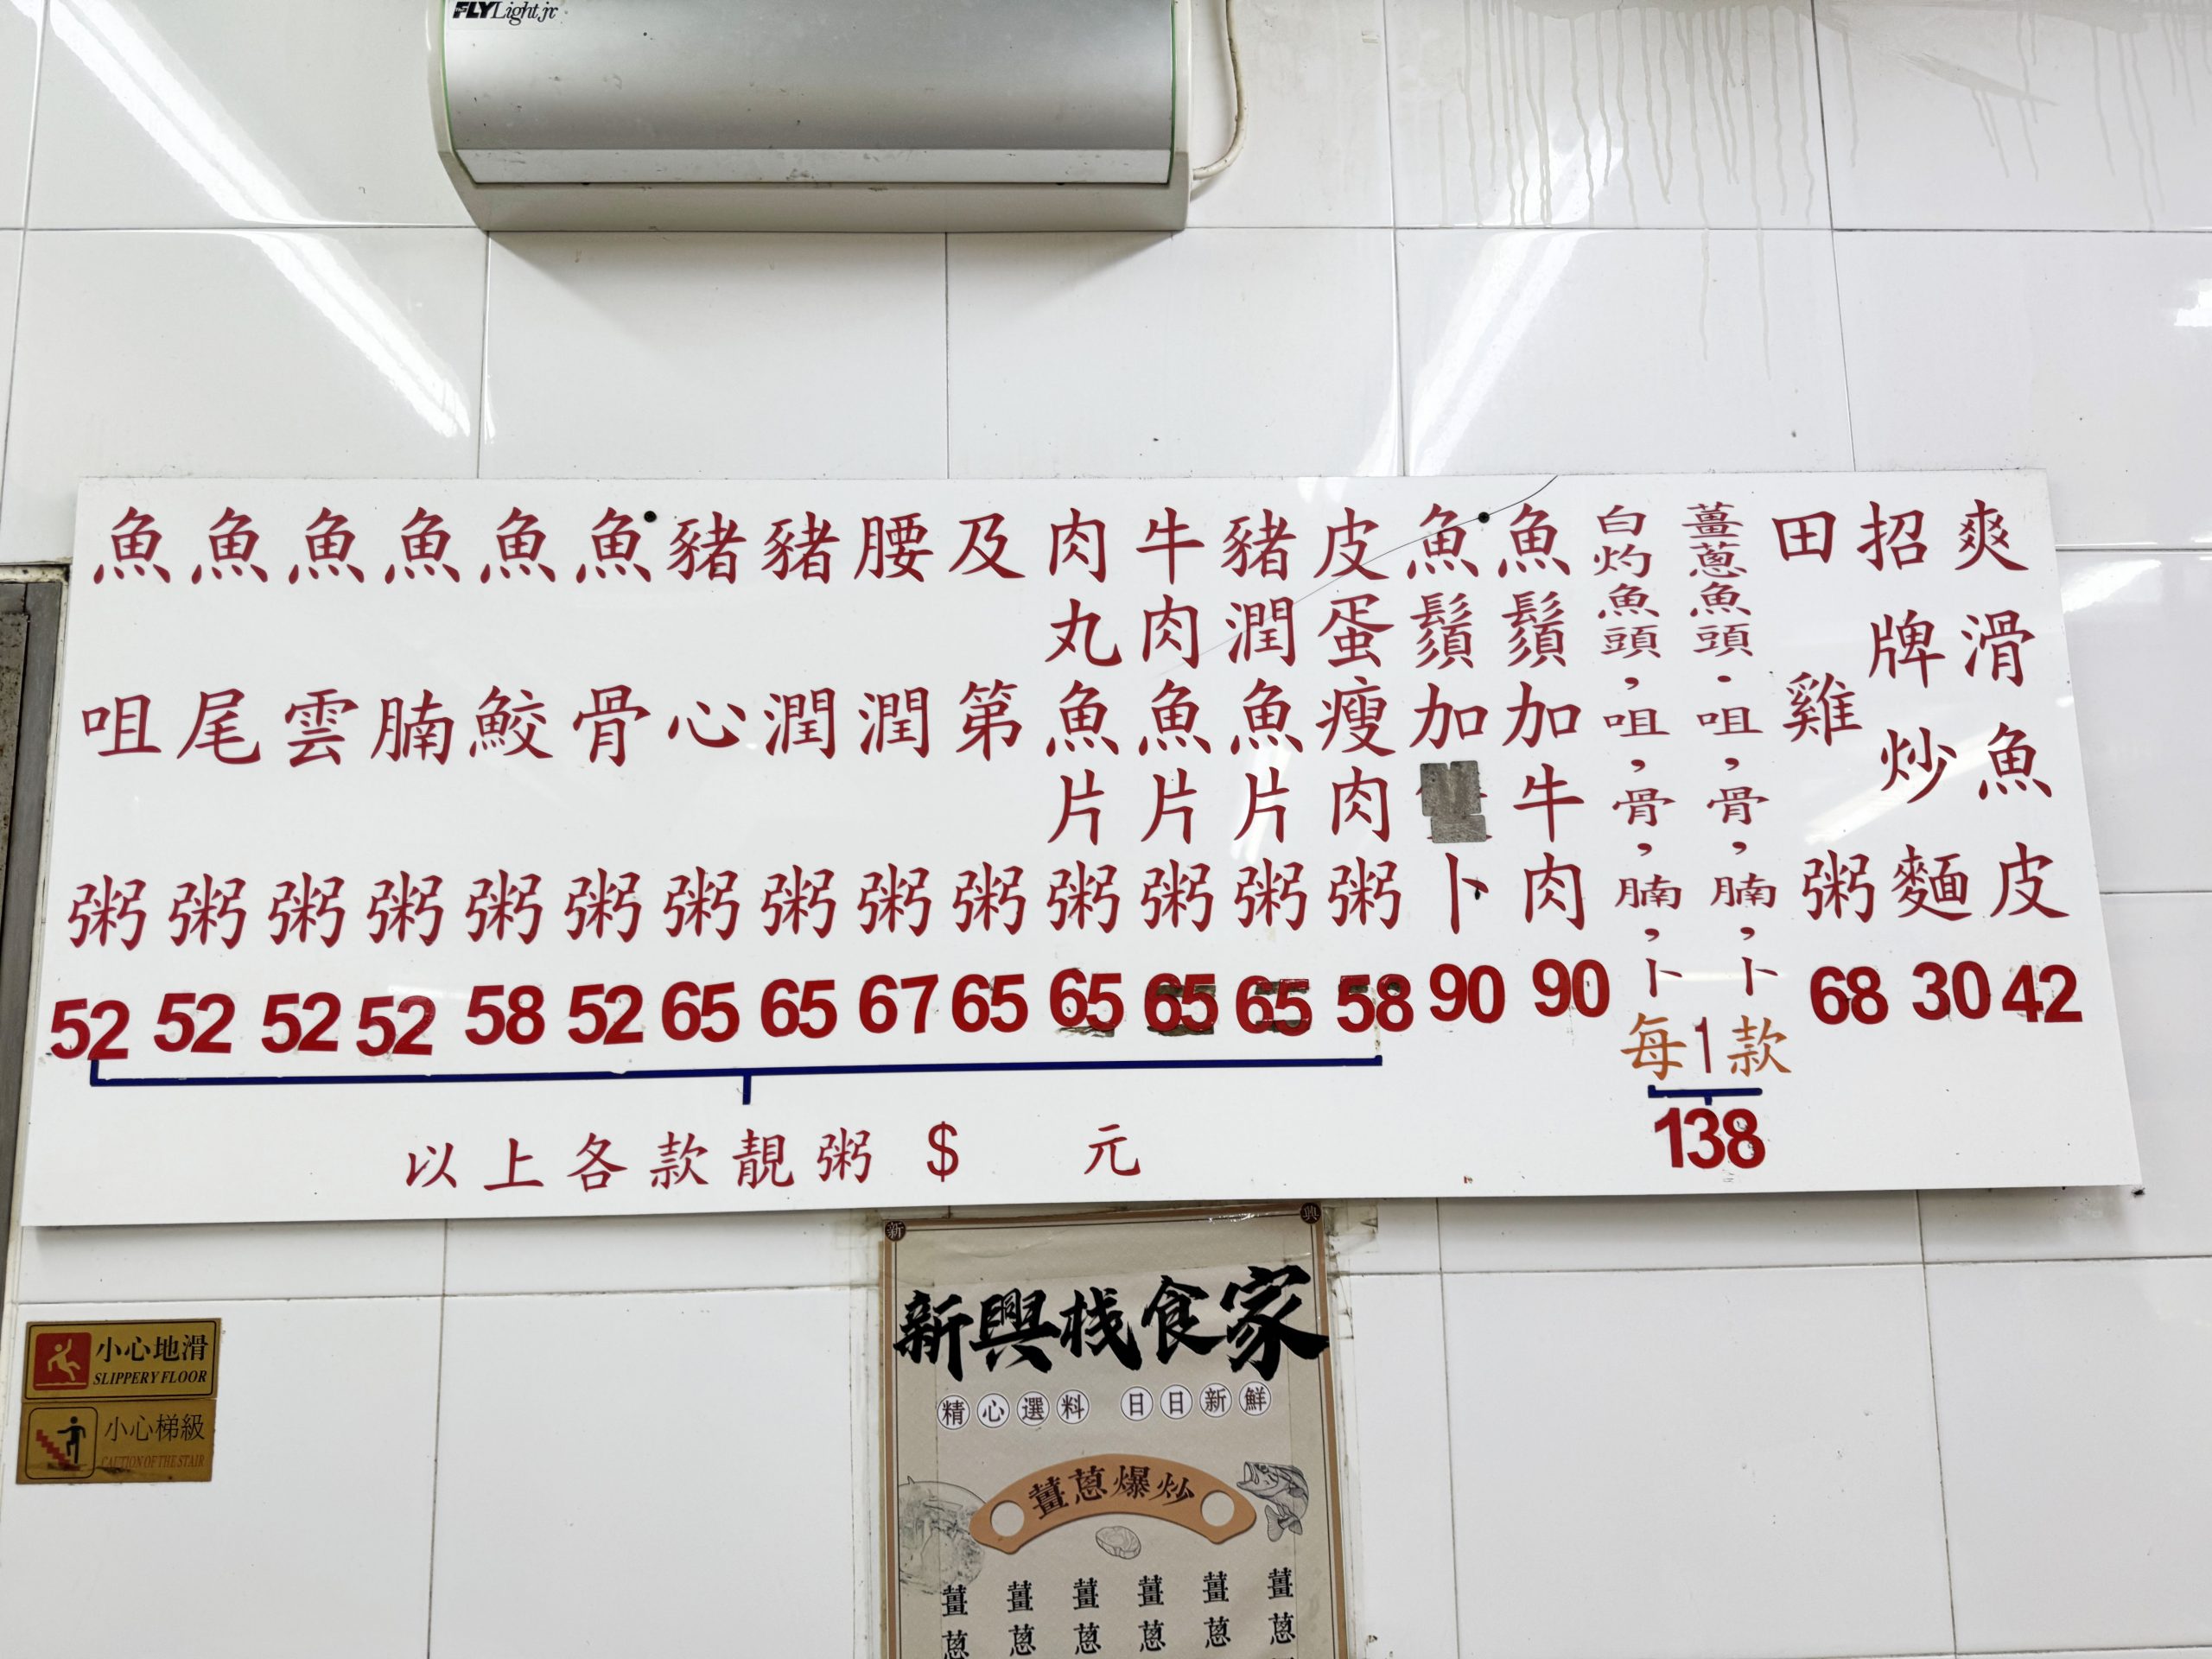 FLYLight jr
魚咀粥 52
魚尾粥 52
魚雲粥 52
魚腩粥 52
魚鮫粥 58
魚骨粥 52
豬心粥 65
豬潤粥 65
腰潤粥 67
及第粥 65
肉丸魚片粥 65
牛肉魚片粥 65
豬潤魚片粥 65
皮蛋瘦肉粥 58
魚鬚加卜 90
魚鬚加牛肉 90
白灼魚頭,咀,骨,腩,卜
薑蔥魚頭·咀,骨,腩,卜
每1款
138
田雞粥 68
招牌炒麵 30
爽滑魚皮 42
以上各款靚粥 $ 元
新 興
新興栈食家
精心選料 日日新鮮
薑蔥爆炒
薑 薑 薑 薑 薑 薑
蔥 蔥 蔥 蔥 蔥 蔥
小心地滑
SLIPPERY FLOOR
小心梯級
CAUTION OF THE STAIR